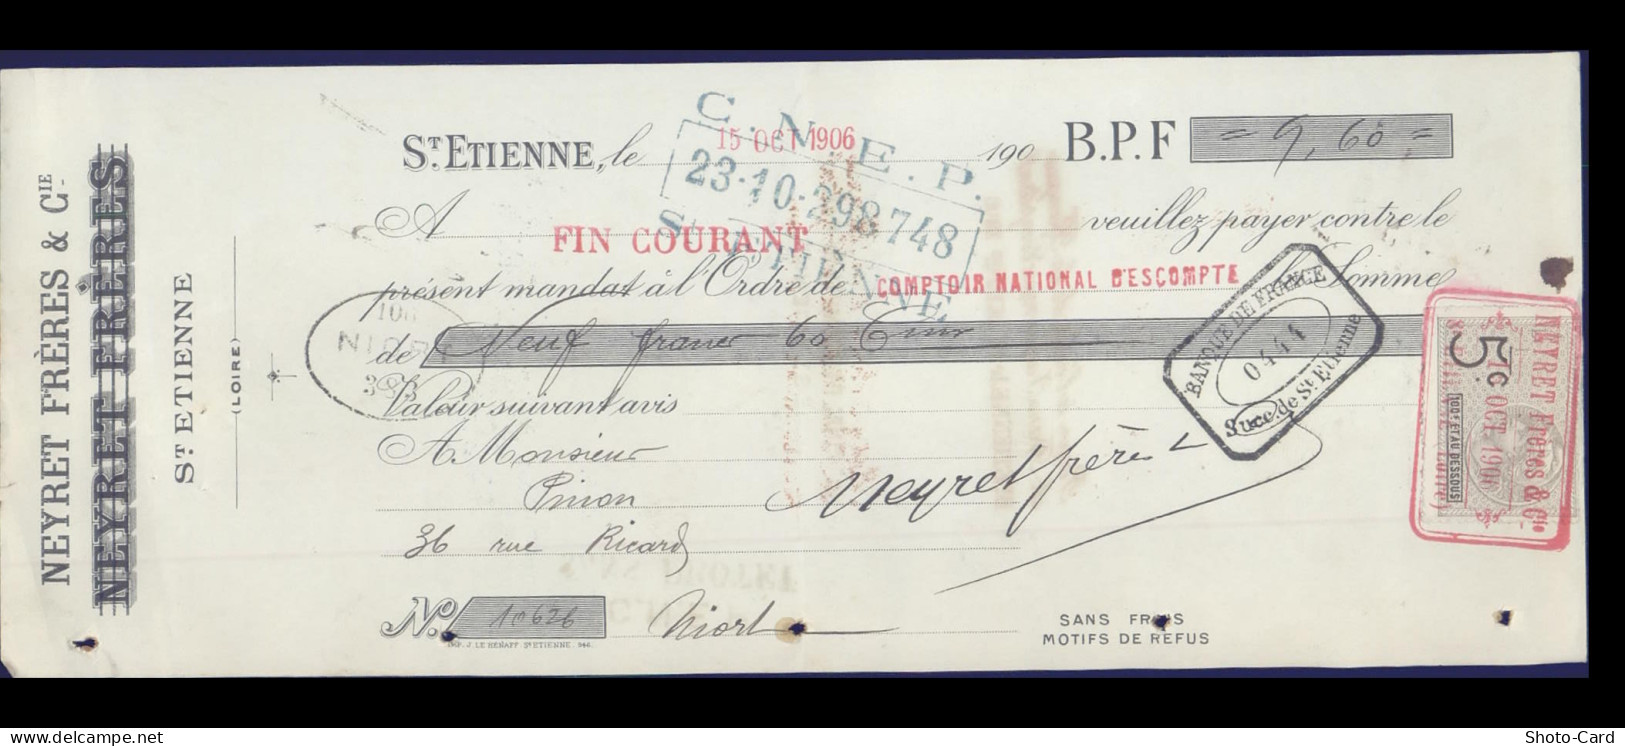 NEYRET FRÈRES & CIE
NEYRET FRÈRES
ST ETIENNE
(LOIRE)
ST. ETIENNE, le 15 OCT 1906 190 B.P.F = 9,60 =
C.N.E.P.
23-10-298748
ST ETIENNE
A FIN COURANT veuillez payer contre le
présent mandat à l'Ordre de COMPTOIR NATIONAL D'ESCOMPTE la Somme
de Neuf francs 60 Cmes
NIORT
Valeur suivant avis
BANQUE DE FRANCE
0444
Succ. de St Etienne
A Monsieur
Pinon
Neyret frères
36 rue Ricard
No. 10626 Niort
SANS FRAIS
MOTIFS DE REFUS
IMP. J. LE HENAFF ST ETIENNE. 946
5c
100F ET AU DESSOUS
NEYRET Frères & Cie
OCT 190
delcampe.net
Shoto-Card